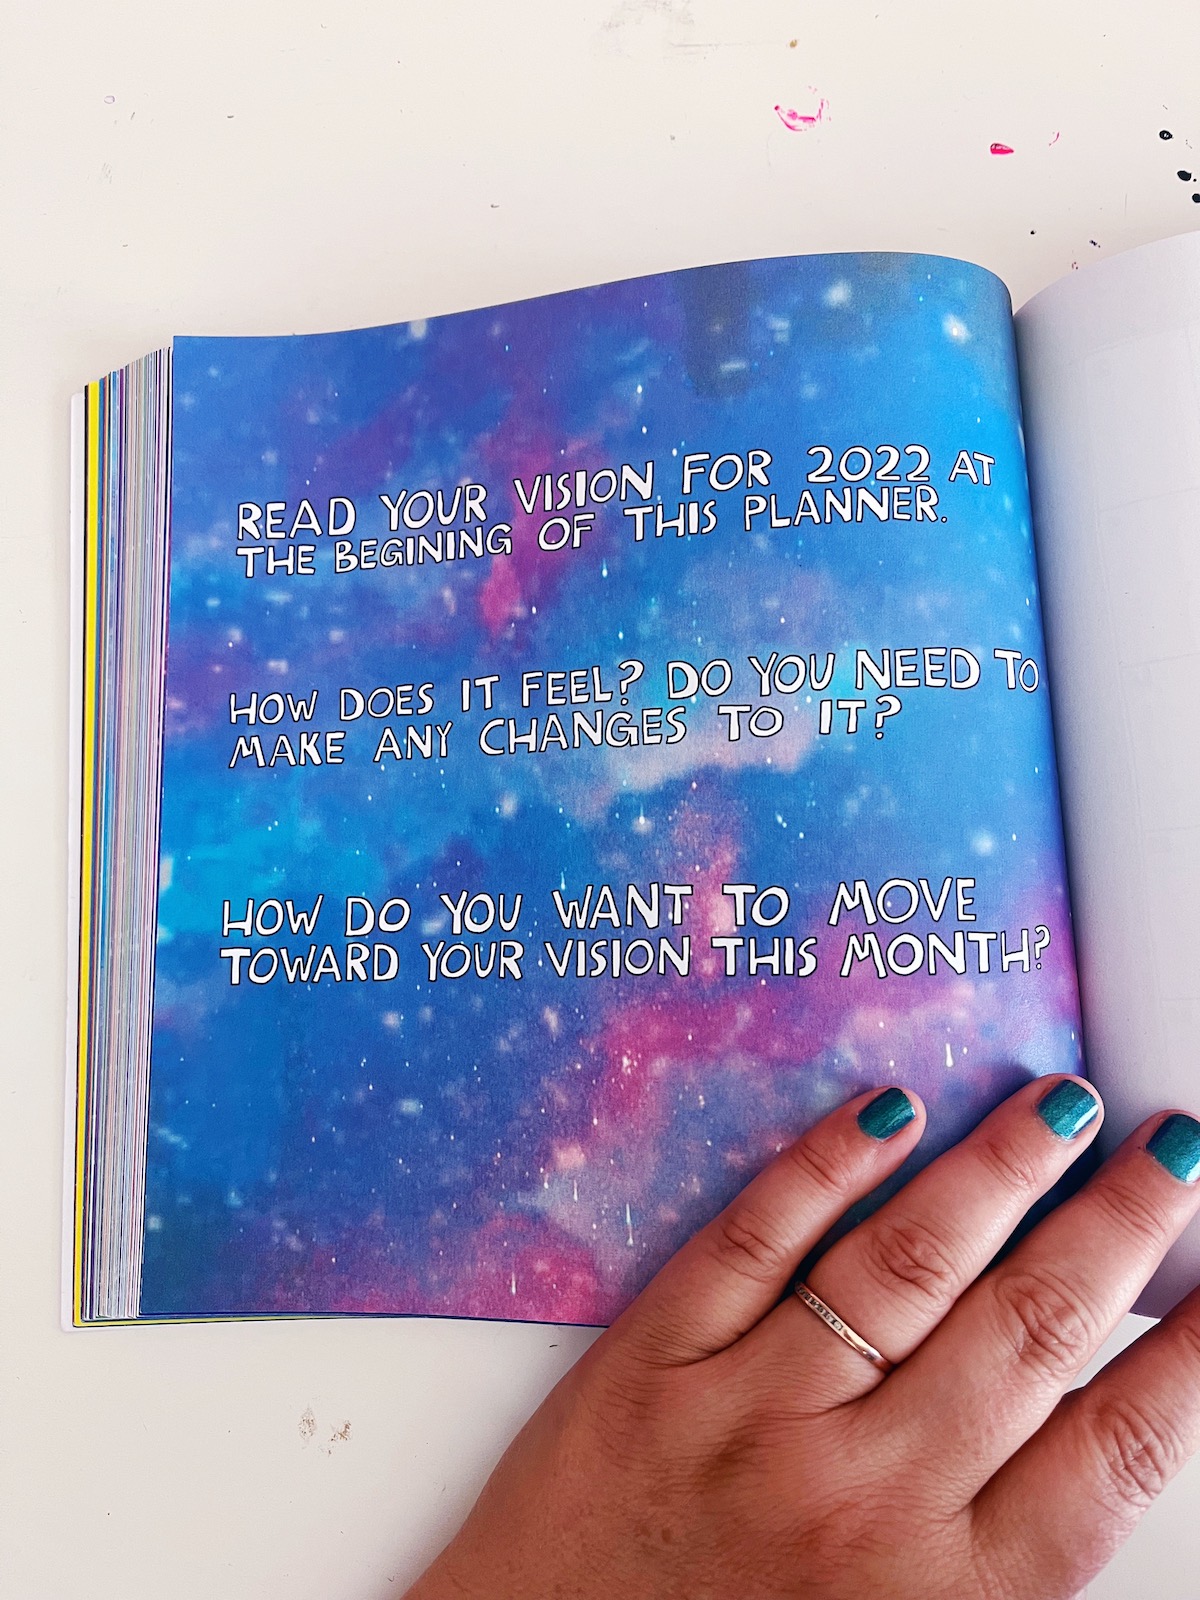 READ YOUR VISION FOR 2022 AT
THE BEGINING OF THIS PLANNER.
HOW DOES IT FEEL? DO YOU NEED TO
MAKE ANY CHANGES TO IT?
HOW DO YOU WANT TO MOVE
TOWARD YOUR VISION THIS MONTH?